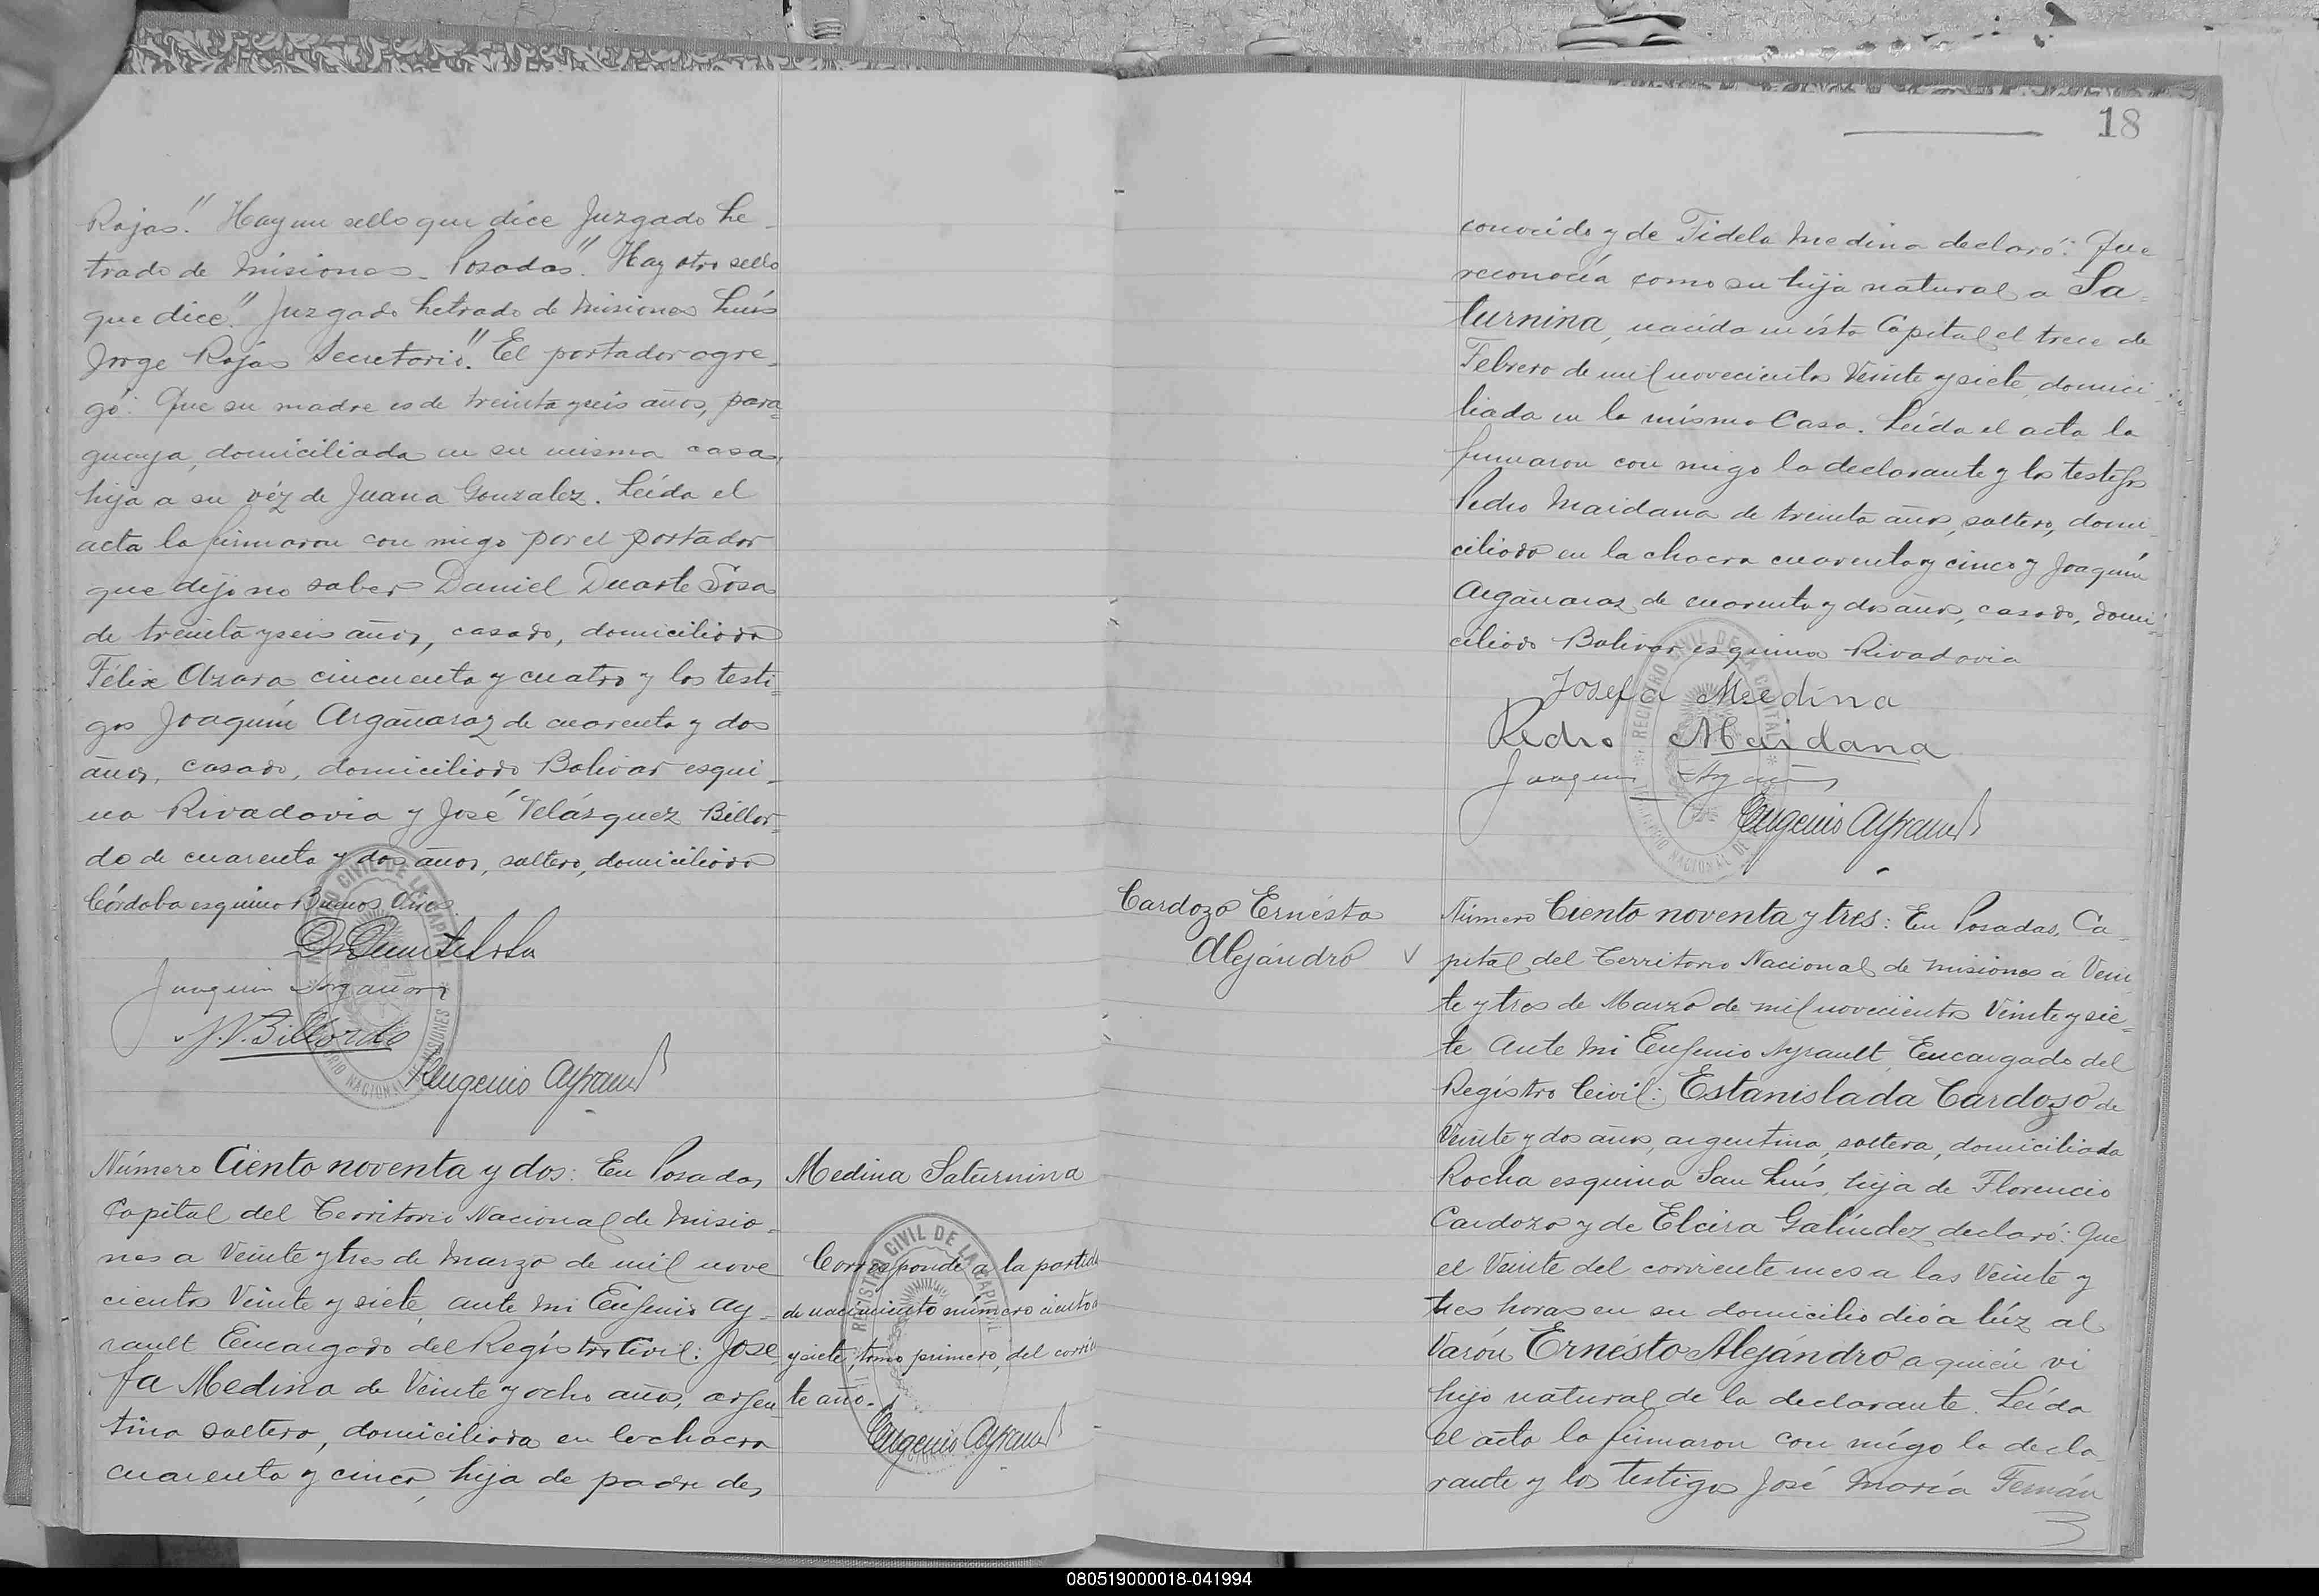 Rojas." Hay un sello que dice "Juzgado Le-
trado de Misiones - Posadas". Hay otro sello
que dice "Juzgado Letrado de Misiones Luís
Jorge Rojas Secretario". El portador agre-
gó: Que su madre es de treinta y seis años, para=
guaya, domiciliada en su misma casa,
hija a su véz de Juana Gonzalez. Leída el
acta la firmaron con migo por el portador
que dijo no saber Daniel Duarte Sosa
de treinta y seis años, casado, domiciliado
Félix Azara cincuenta y cuatro y los testi=
gos Joaquín Argañaraz de cuarenta y dos
años, casado, domiciliado Bolivar esqui-
na Rivadavia y José Velásquez Billor=
do de cuarenta y dos años, soltero, domiciliado
Córdoba esquina Buenos Aires.
D. Duarte Sosa
Joaquin Argañaraz
J. V. Billordo
Eugenio Ayrault
REGISTRO CIVIL DE LA CAPITAL
TERRITORIO NACIONAL DE MISIONES
Número Ciento noventa y dos: En Posadas,
Capital del Territorio Nacional de Misio-
nes a Veinte y tres de Marzo de mil nove
cientos Veinte y siete, ante mi Eugenio Ay-
rault Encargado del Registro Civil: Jose
fa Medina de Veinte y ocho años, argen
tina soltera, domiciliada en la chacra
cuarenta y cinco, hija de padre des
Medina Saturnina
Corresponde a la partida
de nacimiento número ciento
y siete, tomo primero, del corrien
te año.
Eugenio Ayrault
REGISTRO CIVIL DE LA CAPITAL
18
conocido y de Fidela Medina declaró: Que
reconocía como su hija natural a Sa=
turnina, nacida en ésta Capital el trece de
Febrero de mil novecientos Veinte y siete, domici
liada en la misma Casa. Leída el acta la
firmaron con migo la declarante y los testigos
Pedro Maidana de treinta años, soltero, domi
ciliado en la chacra cuarenta y cinco y Joaquín
Argañaraz de cuarenta y dos años, casado, domi=
ciliado Bolivar esquina Rivadavia
Josefa Medina
Pedro Maidana
Joaquin Argañaraz
Eugenio Ayrault
REGISTRO CIVIL DE LA CAPITAL
TERRITORIO NACIONAL DE
Cardozo Ernésto
Alejándro
Número Ciento noventa y tres: En Posadas, Ca-
pital del Territorio Nacional de Misiones a Vein
te y tres de Marzo de mil novecientos Veinte y sie=
te Ante mi Eugenio Ayrault, Encargado del
Registro Civil: Estanislada Cardozo de
Veinte y dos años, argentina, soltera, domiciliada
Rocha esquina San Luís, hija de Florencio
Cardozo y de Elcira Galíndez, declaró: Que
el Veinte del corriente mes a las Veinte y
tres horas en su domicilio dió a lúz al
Varón Ernésto Alejándro a quién vi
hijo natural de la declarante. Leída
el acta la firmaron con mígo la decla
rante y los testigos José María Fernán
080519000018-041994